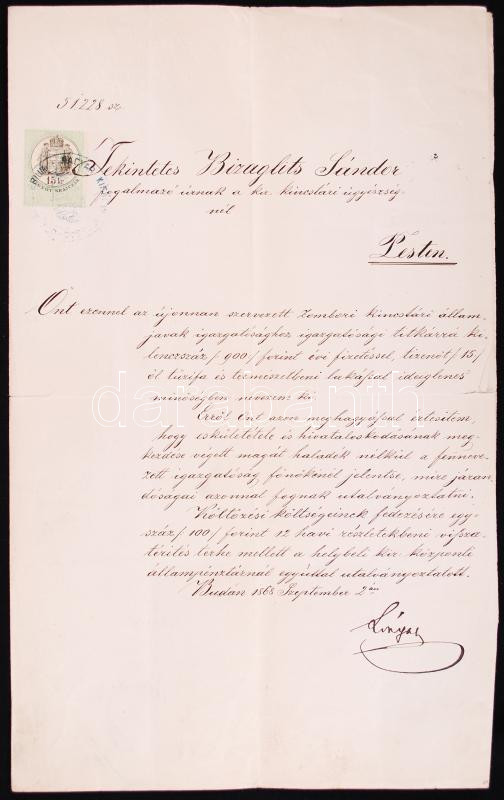 51228 sz
Tekintetes Bizaglits Sándor
fogalmazó úrnak a kir. kincstári ügyészség-
nél
Pesten.
Önt ezennel az újonnan szervezett Zombori kincstári állam-
javak igazgatósághoz igazgatósági titkárrá ki-
lenczszáz /900/ forint évi fizetéssel, tizenöt /15/
öl tüzifa és természetbeni lakással ideiglenes
minőségben nevezem ki.
Erről önt azon meghagyással értesítem,
hogy eskületétele és hivataloskodásának meg-
kezdése végett magát haladék nélkül a fennevez-
zett igazgatóság főnökénél jelentse, mire járan-
dóságai azonnal fognak utalványoztatni.
Költözési költségeinek fedezésére egy-
száz /100/ forint 12 havi részletekbeni vissza-
térítés terhe mellett a helybeli kir. központi
állampénztárnál egyúttal utalványoztatott.
Budán 1868 Szeptember 2án
Lónyay